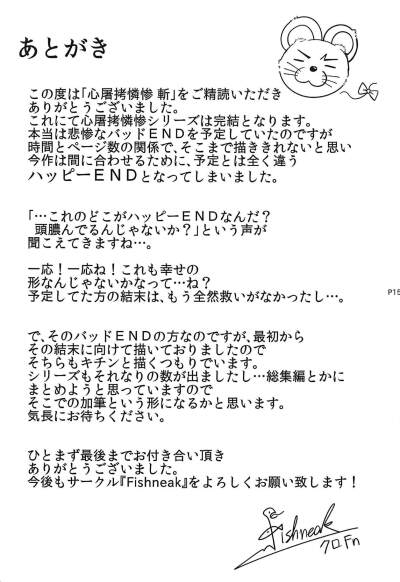 あとがき
この度は「心屠拷憐惨 斬」をご精読いただき
ありがとうございました。
これにて心屠拷憐惨シリーズは完結となります。
本当は悲惨なバッドＥＮＤを予定していたのですが
時間とページ数の関係で、そこまで描ききれないと思い
今作は間に合わせるために、予定とは全く違う
ハッピーＥＮＤとなってしまいました。
「…これのどこがハッピーＥＮＤなんだ？
頭膿んでるんじゃないか？」という声が
聞こえてきますね…。
一応！一応ね！これも幸せの
形なんじゃないかなって…ね？
予定してた方の結末は、もう全然救いがなかったし…。
P15
で、そのバッドＥＮＤの方なのですが、最初から
その結末に向けて描いておりましたので
そちらもキチンと描くつもりでいます。
シリーズもそれなりの数が出ましたし…総集編とかに
まとめようと思っていますので
そこでの加筆という形になるかと思います。
気長にお待ちください。
ひとまず最後までお付き合い頂き
ありがとうございました。
今後もサークル『Fishneak』をよろしくお願い致します！
Fishneak
クロFn